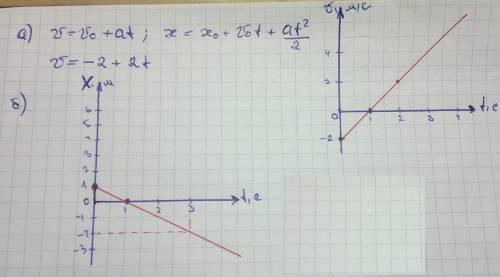 а) v = v₀ + at ; x = x₀ + v₀t + at²/2
v = -2 + 2t
б)
X, м
6
5
4
3
2
1
0
-1
-2
-3
1
2
3
t, с
v, м/с
4
2
0
-2
1
2
3
4
t, с